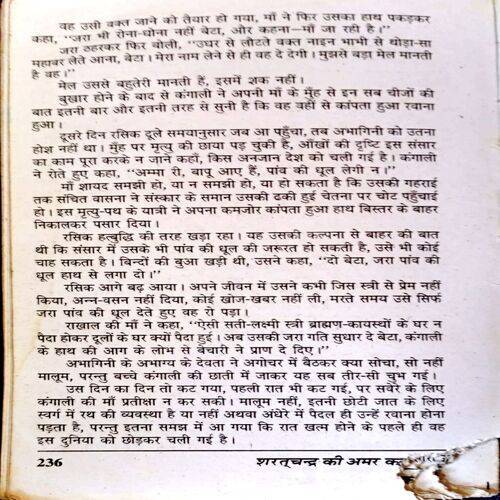 वह उसी वक्त जाने को तैयार हो गया, माँ ने फिर उसका हाथ पकड़कर
कहा, ‘‘जरा भी रोना-धोना नहीं बेटा, और कहना—माँ जा रही है।’’
जरा ठहरकर फिर बोली, ‘‘उधर से लौटते वक्त नाइन भाभी से थोड़ा-सा
महावर लेते आना, बेटा। मेरा नाम लेने से ही वह दे देगी। मुझसे बड़ा मेल मानती
है वह।’’
मेल उससे बहुतेरी मानती हैं, इसमें शक नहीं।
बुखार होने के बाद से कंगाली ने अपनी माँ के मुँह से इन सब चीजों की
बात इतनी बार और इतनी तरह से सुनी है कि वह वहीं से कांपता हुआ रवाना
हुआ।
दूसरे दिन रसिक दूले समयानुसार जब आ पहुँचा, तब अभागिनी को उतना
होश नहीं था। मुँह पर मृत्यु की छाया पड़ चुकी है, आँखों की दृष्टि इस संसार
का काम पूरा करके न जाने कहाँ, किस अनजान देश को चली गई है। कंगाली
ने रोते हुए कहा, ‘‘अम्मा री, बापू आए हैं, पांव की धूल लेगी न।’’
माँ शायद समझी हो, या न समझी हो, या हो सकता है कि उसकी गहराई
तक संचित वासना ने संस्कार के समान उसकी ढकी हुई चेतना पर चोट पहुँचाई
हो। इस मृत्यु-पथ के यात्री ने अपना कमजोर कांपता हुआ हाथ बिस्तर के बाहर
निकालकर पसार दिया।
रसिक हत्बुद्धि की तरह खड़ा रहा। यह उसकी कल्पना से बाहर की बात
थी कि संसार में उसके भी पांव की धूल की जरूरत हो सकती है, उसे भी कोई
चाह सकता है। बिन्दों की बुआ खड़ी थी, उसने कहा, ‘‘दो बेटा, जरा पांव की
धूल हाथ से लगा दो।’’
रसिक आगे बढ़ आया। अपने जीवन में उसने कभी जिस स्त्री से प्रेम नहीं
किया, अन्न-वसन नहीं दिया, कोई खोज-खबर नहीं ली, मरते समय उसे सिर्फ
जरा पांव की धूल देते हुए वह रो पड़ा।
राखाल की माँ ने कहा, ‘‘ऐसी सती-लक्ष्मी स्त्री ब्राह्मण-कायस्थों के घर न
पैदा होकर दूलों के घर क्यों पैदा हुई। अब उसकी जरा गति सुधार दे बेटा, कंगाली
के हाथ की आग के लोभ से बेचारी ने प्राण दे दिए।’’
अभागिनी के अभाग्य के देवता ने अगोचर में बैठकर क्या सोचा, सो नहीं
मालूम, परन्तु बच्चे कंगाली की छाती में जाकर यह सब तीर-सी चुभ गई।
उस दिन का दिन तो कट गया, पहली रात भी कट गई, पर सवेरे के लिए
कंगाली की माँ प्रतीक्षा न कर सकी। मालूम नहीं, इतनी छोटी जात के लिए
स्वर्ग में रथ की व्यवस्था है या नहीं अथवा अंधेरे में पैदल ही उन्हें रवाना होना
पड़ता है, परन्तु इतना समझ में आ गया कि रात खत्म होने के पहले ही वह
इस दुनिया को छोड़कर चली गई है।
236 शरत्‌चन्द्र की अमर